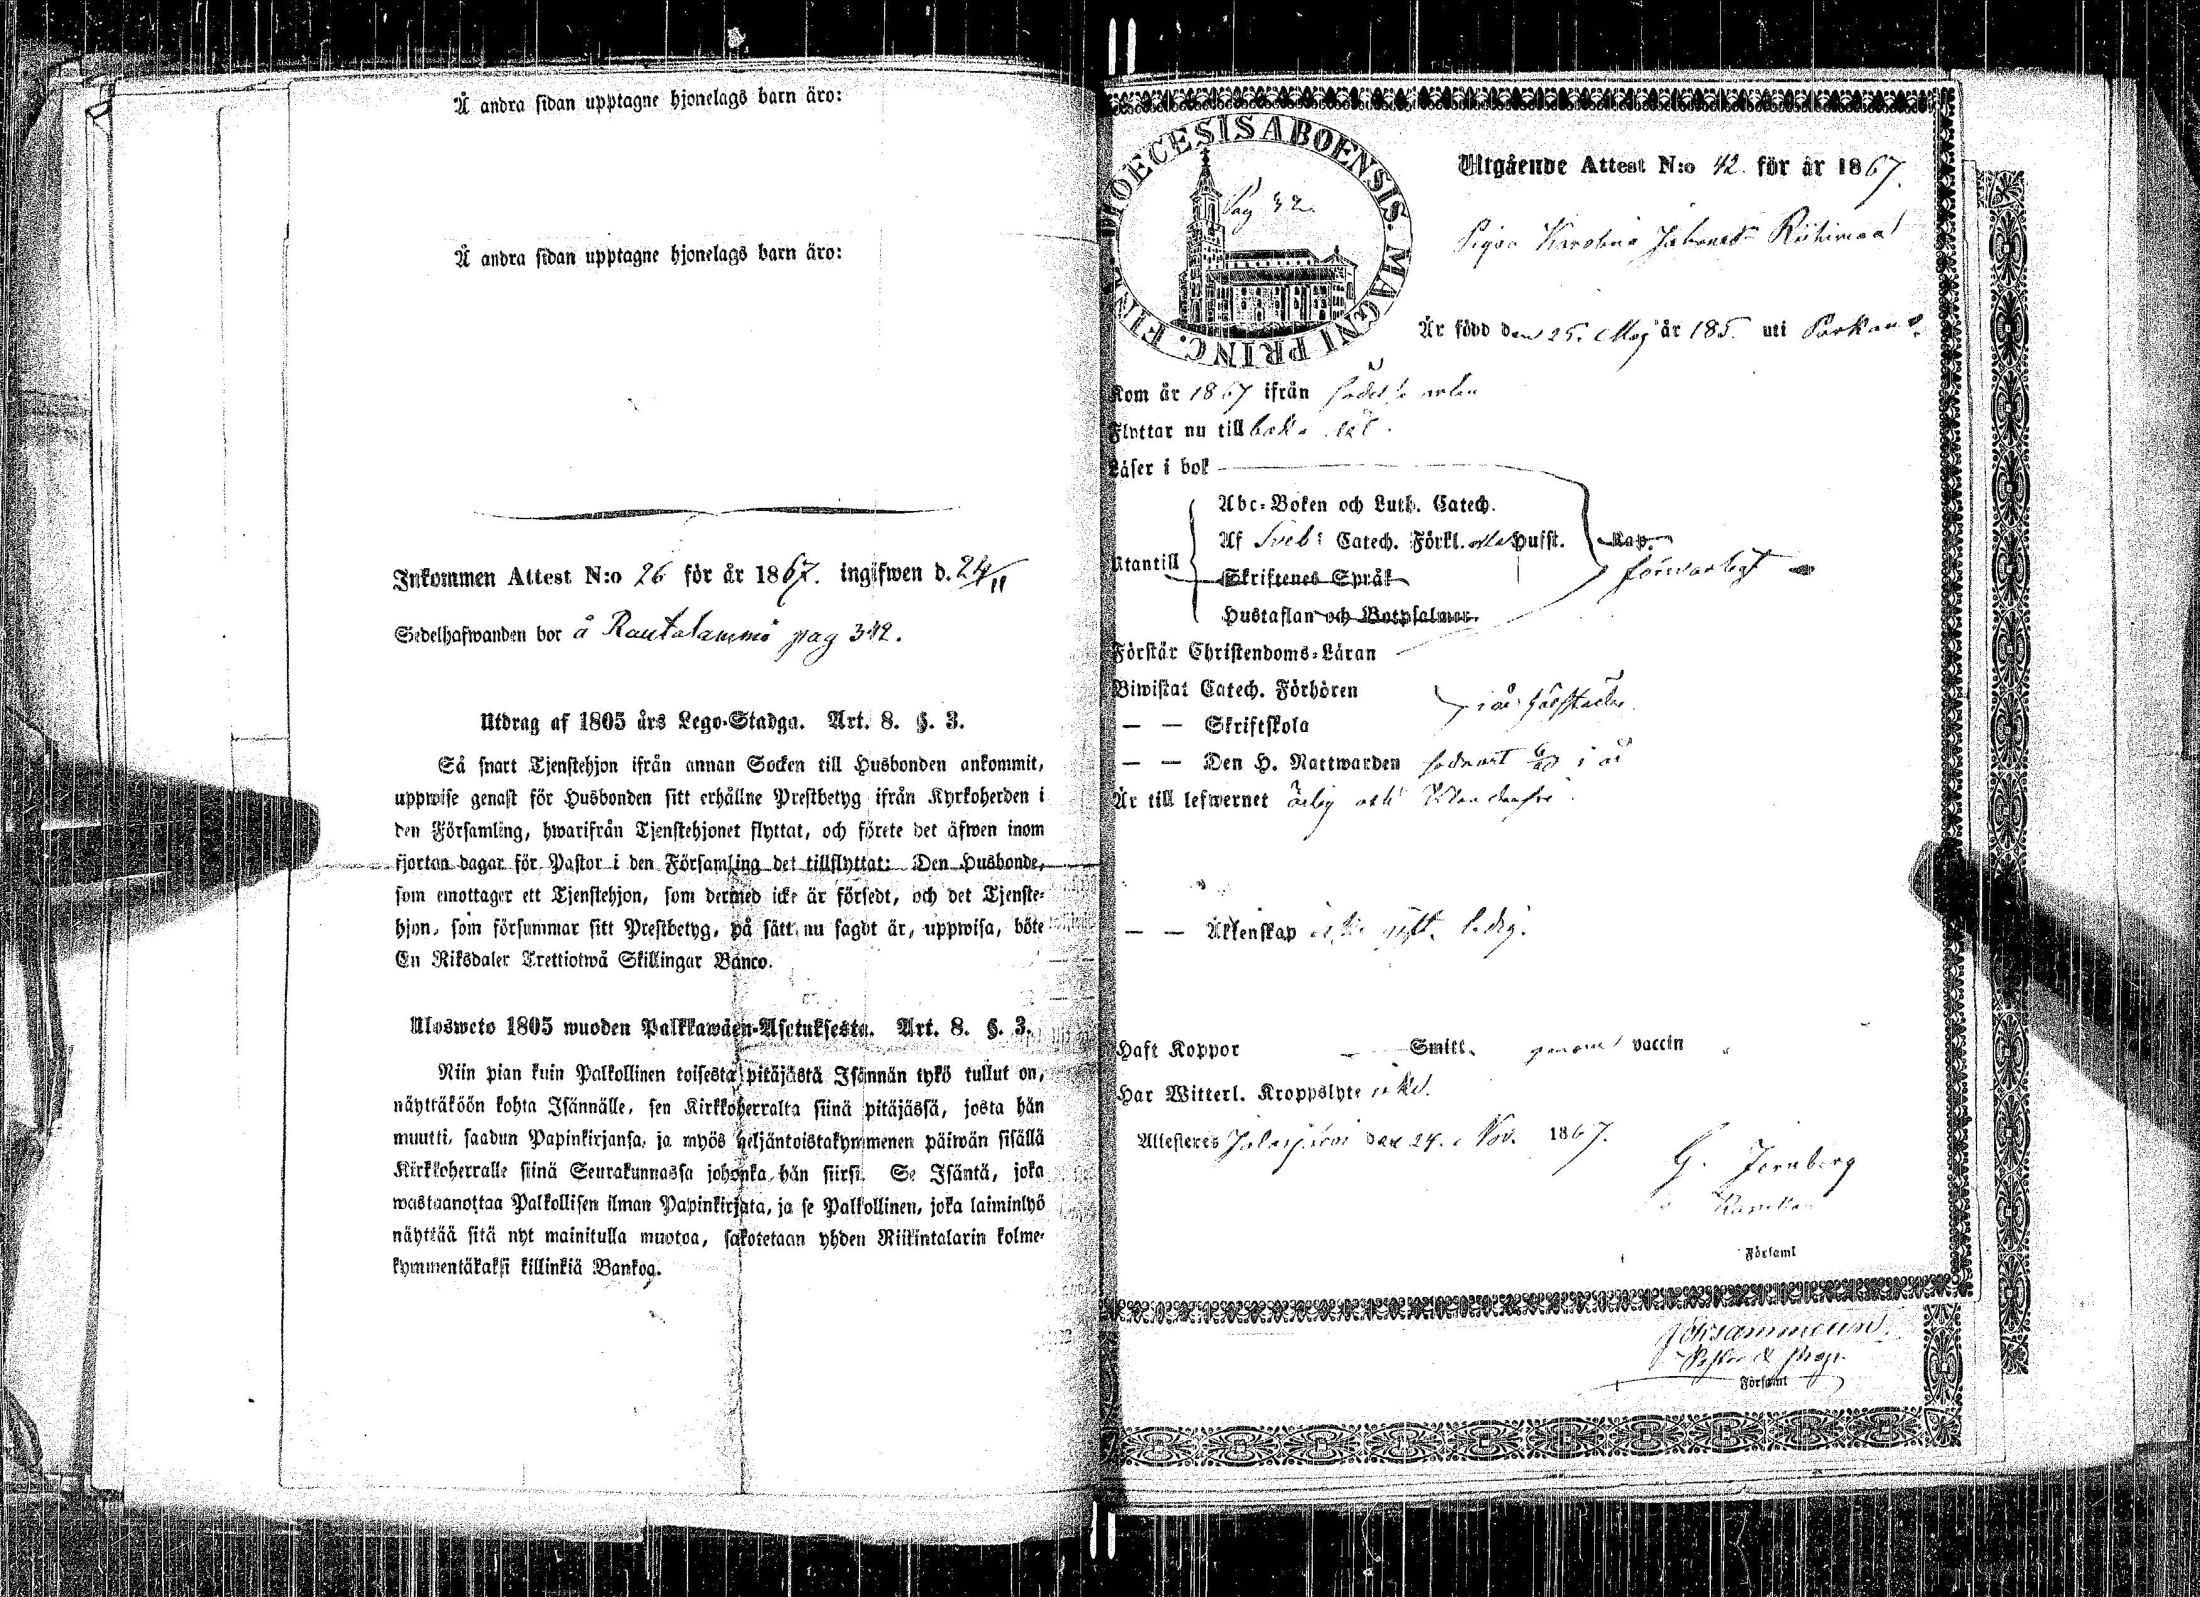 Å andra sidan upptagne hjonelags barn äro:
Å andra sidan upptagne hjonelags barn äro:
Inkommen Attest N:o 26 för år 1867. ingifwen d. 24/11
Sedelhafwanden bor å Rautalammi pag 342.
Utdrag af 1805 års Lego-Stadga. Art. 8. §. 3.
Så snart Tjenstehjon ifrån annan Socken till Husbonden ankommit,
uppwise genast för Husbonden sitt erhållne Prestbetyg ifrån Kyrkoherden i
den Församling, hwarifrån Tjenstehjonet flyttat, och förete det äfwen inom
fjorton dagar för Pastor i den Församling det tillflyttat: Den Husbonde,
som emottager ett Tjenstehjon, som dermed icke är försedt, och det Tjenste-
hjon, som försummar sitt Prestbetyg, på sätt nu sagdt är, uppwisa, böte
En Riksdaler Trettiotwå Skillingar Banco.
Ulosweto 1805 wuoden Palkkawäen-Asetuksesta. Art. 8. §. 3.
Niin pian kuin Palkollinen toisesta pitäjästä Isännän tykö tullut on,
näyttäköön kohta Isännälle, sen Kirkkoherralta siinä pitäjässä, josta hän
muutti, saadun Papinkirjansa, ja myös neljäntoistakymmenen päiwän sisällä
Kirkkoherralle siinä Seurakunnassa johonka hän siirsi. Se Isäntä, joka
wastaanottaa Palkollisen ilman Papinkirjata, ja se Palkollinen, joka laiminlyö
näyttää sitä nyt mainitulla muotoa, sakotetaan yhden Riikintalarin kolme-
kymmentäkaksi killinkiä Bankog.
DIOECESIS ABOENSIS. MAGNI PRINC. FINL.
Pag 32.
Utgående Attest N:o 42. för år 1867.
Pigan Karolina Riihimaa
Är född den 25. Maj år 185. uti Parkano.
Kom år 1867 ifrån födelseorten
Flyttar nu tillbaka
Läser i bok
Abc-Boken och Luth. Catech.
Af Sveb: Catech. Förkl. Hussst. Kap.
Utantill
försvarligt
Skriftenes Språk
Hustaflan och Botpsalmer.
Förstår Christendoms-Läran
Biwistat Catech. Förhören
— — Skriftskola
— — Den H. Nattwarden i år
Är till lefwernet ärlig och
— — Äktenskap ledig.
Haft Koppor — Smitt. genom vaccin
Har Witterl. Kroppslyte icke.
Attesteres Jalasjärvi den 24. Nov. 1867.
G. Jernberg
Församl
Församl